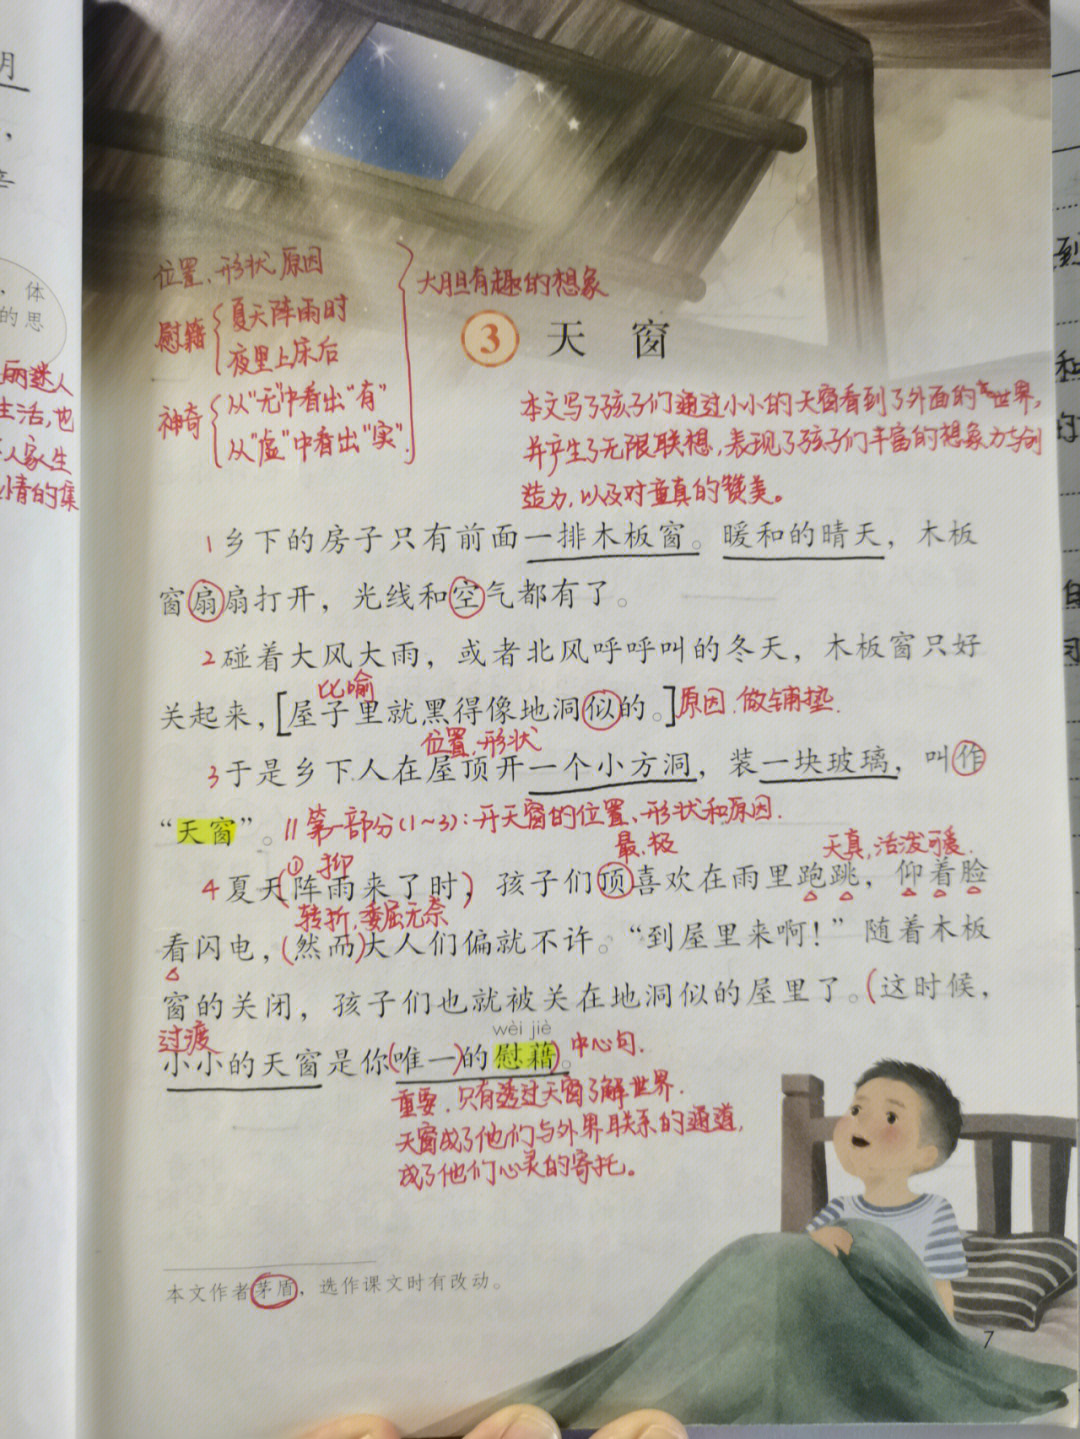 月
，
，体
的思
丽迷人
生活,也
人家生
情的集
位置、形状 原因
大胆有趣的想象
慰籍
夏天阵雨时
夜里上床后
神奇
从“无”中看出“有”
从“虚”中看出“实”.
3 天 窗
本文写了孩子们通过小小的天窗看到了外面的世界,
并产生了无限联想,表现了孩子们丰富的想象力与创
造力,以及对童真的赞美。
1 乡下的房子只有前面一排木板窗。暖和的晴天，木板
窗扇扇打开，光线和空气都有了。
2 碰着大风大雨，或者北风呼呼叫的冬天，木板窗只好
比喻
关起来，[屋子里就黑得像地洞似的。]原因.做铺垫.
位置,形状
3 于是乡下人在屋顶开一个小方洞，装一块玻璃，叫作
“天窗”。//第一部分(1~3):开天窗的位置、形状和原因.
① 抑
最,极
天真,活泼可爱.
4 夏天(阵雨来了时)，孩子们顶喜欢在雨里跑跳，仰着脸
转折,委屈无奈
看闪电，(然而)大人们偏就不许。“到屋里来啊！”随着木板
窗的关闭，孩子们也就被关在地洞似的屋里了。(这时候，
过渡
wèi jiè
小小的天窗是你(唯一)的慰藉)。中心句.
重要.只有透过天窗了解世界.
天窗成了他们与外界联系的通道,
成了他们心灵的寄托。
本文作者茅盾，选作课文时有改动。
7
到
和
的